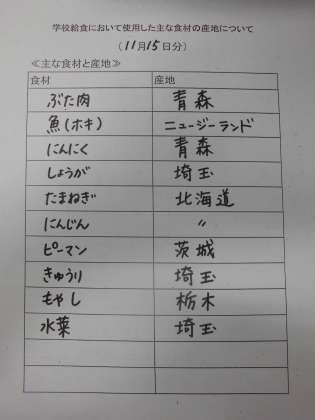 学校給食において使用した主な食材の産地について
(11月15日分)
≪主な食材と産地≫
食材 産地
ぶた肉 青森
魚(ホキ) ニュージーランド
にんにく 青森
しょうが 埼玉
たまねぎ 北海道
にんじん 〃
ピーマン 茨城
きゅうり 埼玉
もやし 栃木
水菜 埼玉